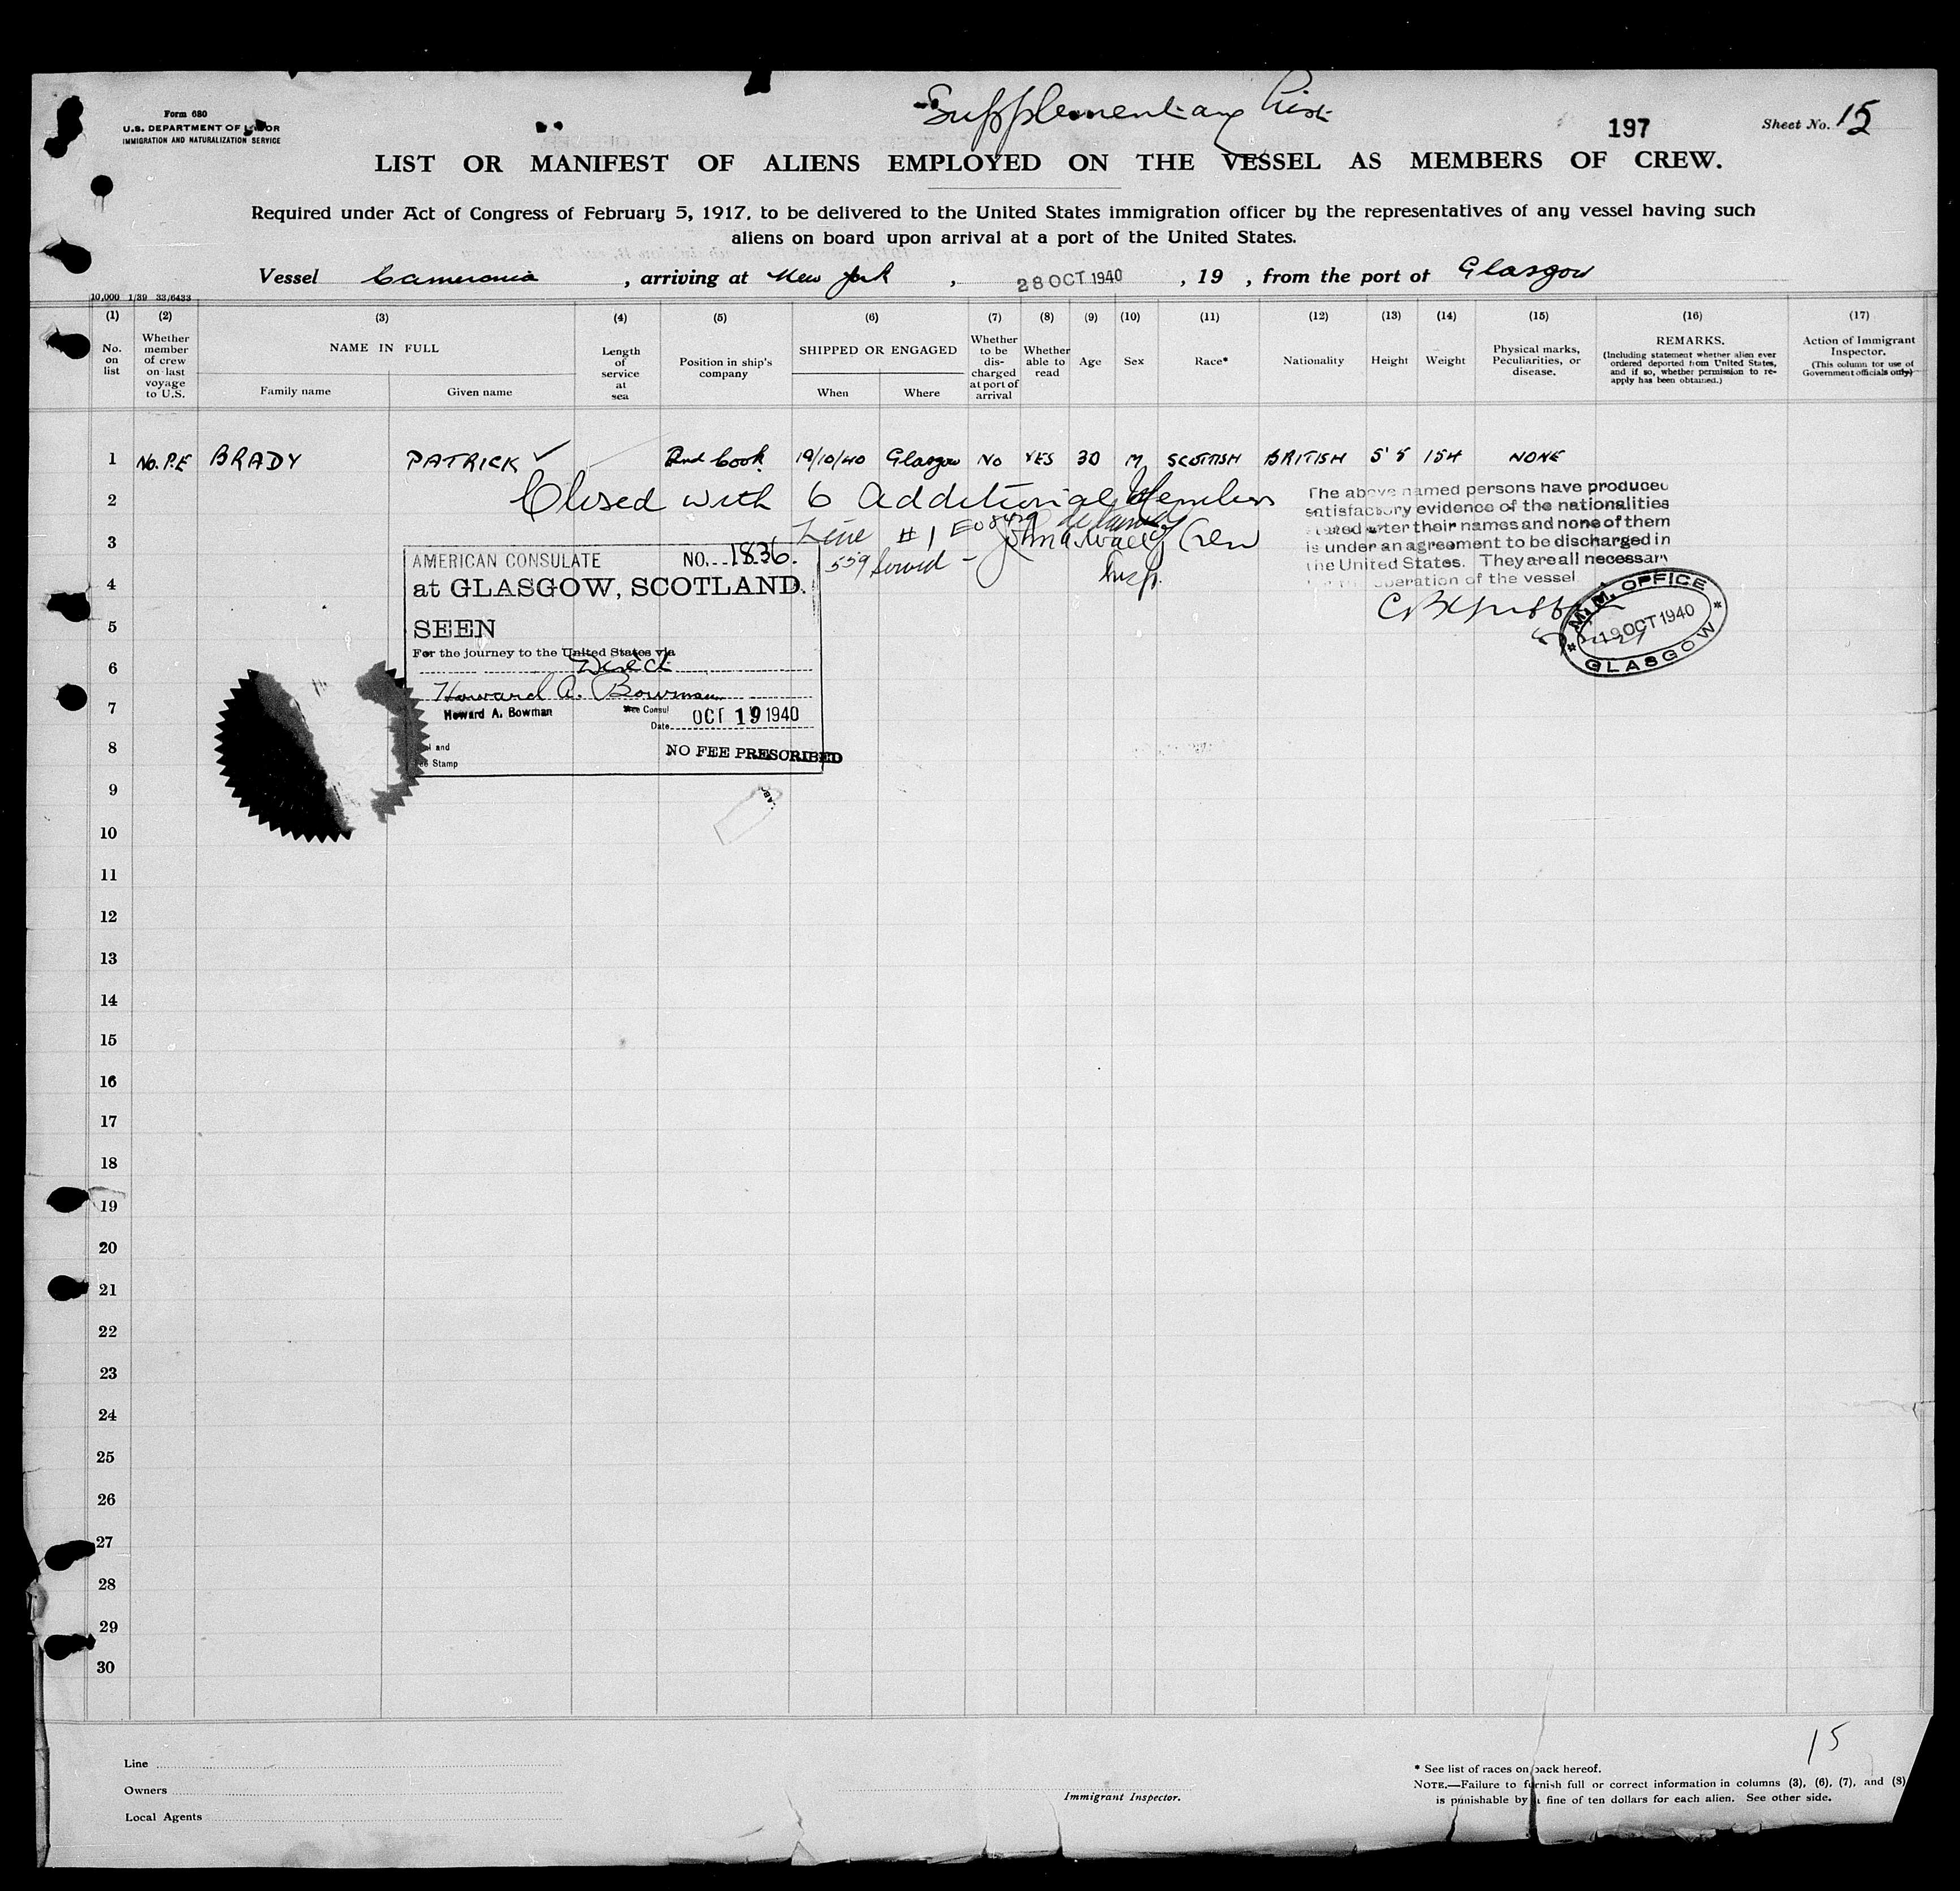 Supplementary List
Form 680
U.S. DEPARTMENT OF LABOR
IMMIGRATION AND NATURALIZATION SERVICE
197
Sheet No. 15
LIST OR MANIFEST OF ALIENS EMPLOYED ON THE VESSEL AS MEMBERS OF CREW.
Required under Act of Congress of February 5, 1917, to be delivered to the United States immigration officer by the representatives of any vessel having such
aliens on board upon arrival at a port of the United States.
Vessel Cameronia , arriving at New York , 28 OCT 1940 , 19 , from the port of Glasgow
10,000 1/39 33/6433
(1) (2) (3) (4) (5) (6) (7) (8) (9) (10) (11) (12) (13) (14) (15) (16) (17)
No. on list
Whether member of crew on last voyage to U.S.
NAME IN FULL
Family name
Given name
Length of service at sea
Position in ship's company
SHIPPED OR ENGAGED
When
Where
Whether to be discharged at port of arrival
Whether able to read
Age
Sex
Race*
Nationality
Height
Weight
Physical marks, Peculiarities, or disease.
REMARKS.
(Including statement whether alien ever ordered deported from United States, and if so, whether permission to re-apply has been obtained.)
Action of Immigrant Inspector.
(This column for use of Government officials only)
1 No. P.E BRADY PATRICK ✓ 2nd Cook 19/10/40 Glasgow NO YES 30 M SCOTTISH BRITISH 5' 5 154 NONE
2 Closed with 6 additional Members
of Crew
3 Line #1
559 Served -
Insp.
The above named persons have produced
satisfactory evidence of the nationalities
stated after their names and none of them
is under an agreement to be discharged in
the United States. They are all necessary
operation of the vessel
M.M. OFFICE
19 OCT 1940
GLASGOW
AMERICAN CONSULATE NO. 1836.
at GLASGOW, SCOTLAND.
SEEN
For the journey to the United States via
Direct
Howard A. Bowman
Howard A. Bowman Vice Consul
Date OCT 19 1940
and
Stamp
NO FEE PRESCRIBED
4
5
6
7
8
9
10
11
12
13
14
15
16
17
18
19
20
21
22
23
24
25
26
27
28
29
30
15
Line
Owners
Local Agents
Immigrant Inspector.
* See list of races on back hereof.
NOTE.—Failure to furnish full or correct information in columns (3), (6), (7), and (8)
is punishable by a fine of ten dollars for each alien. See other side.